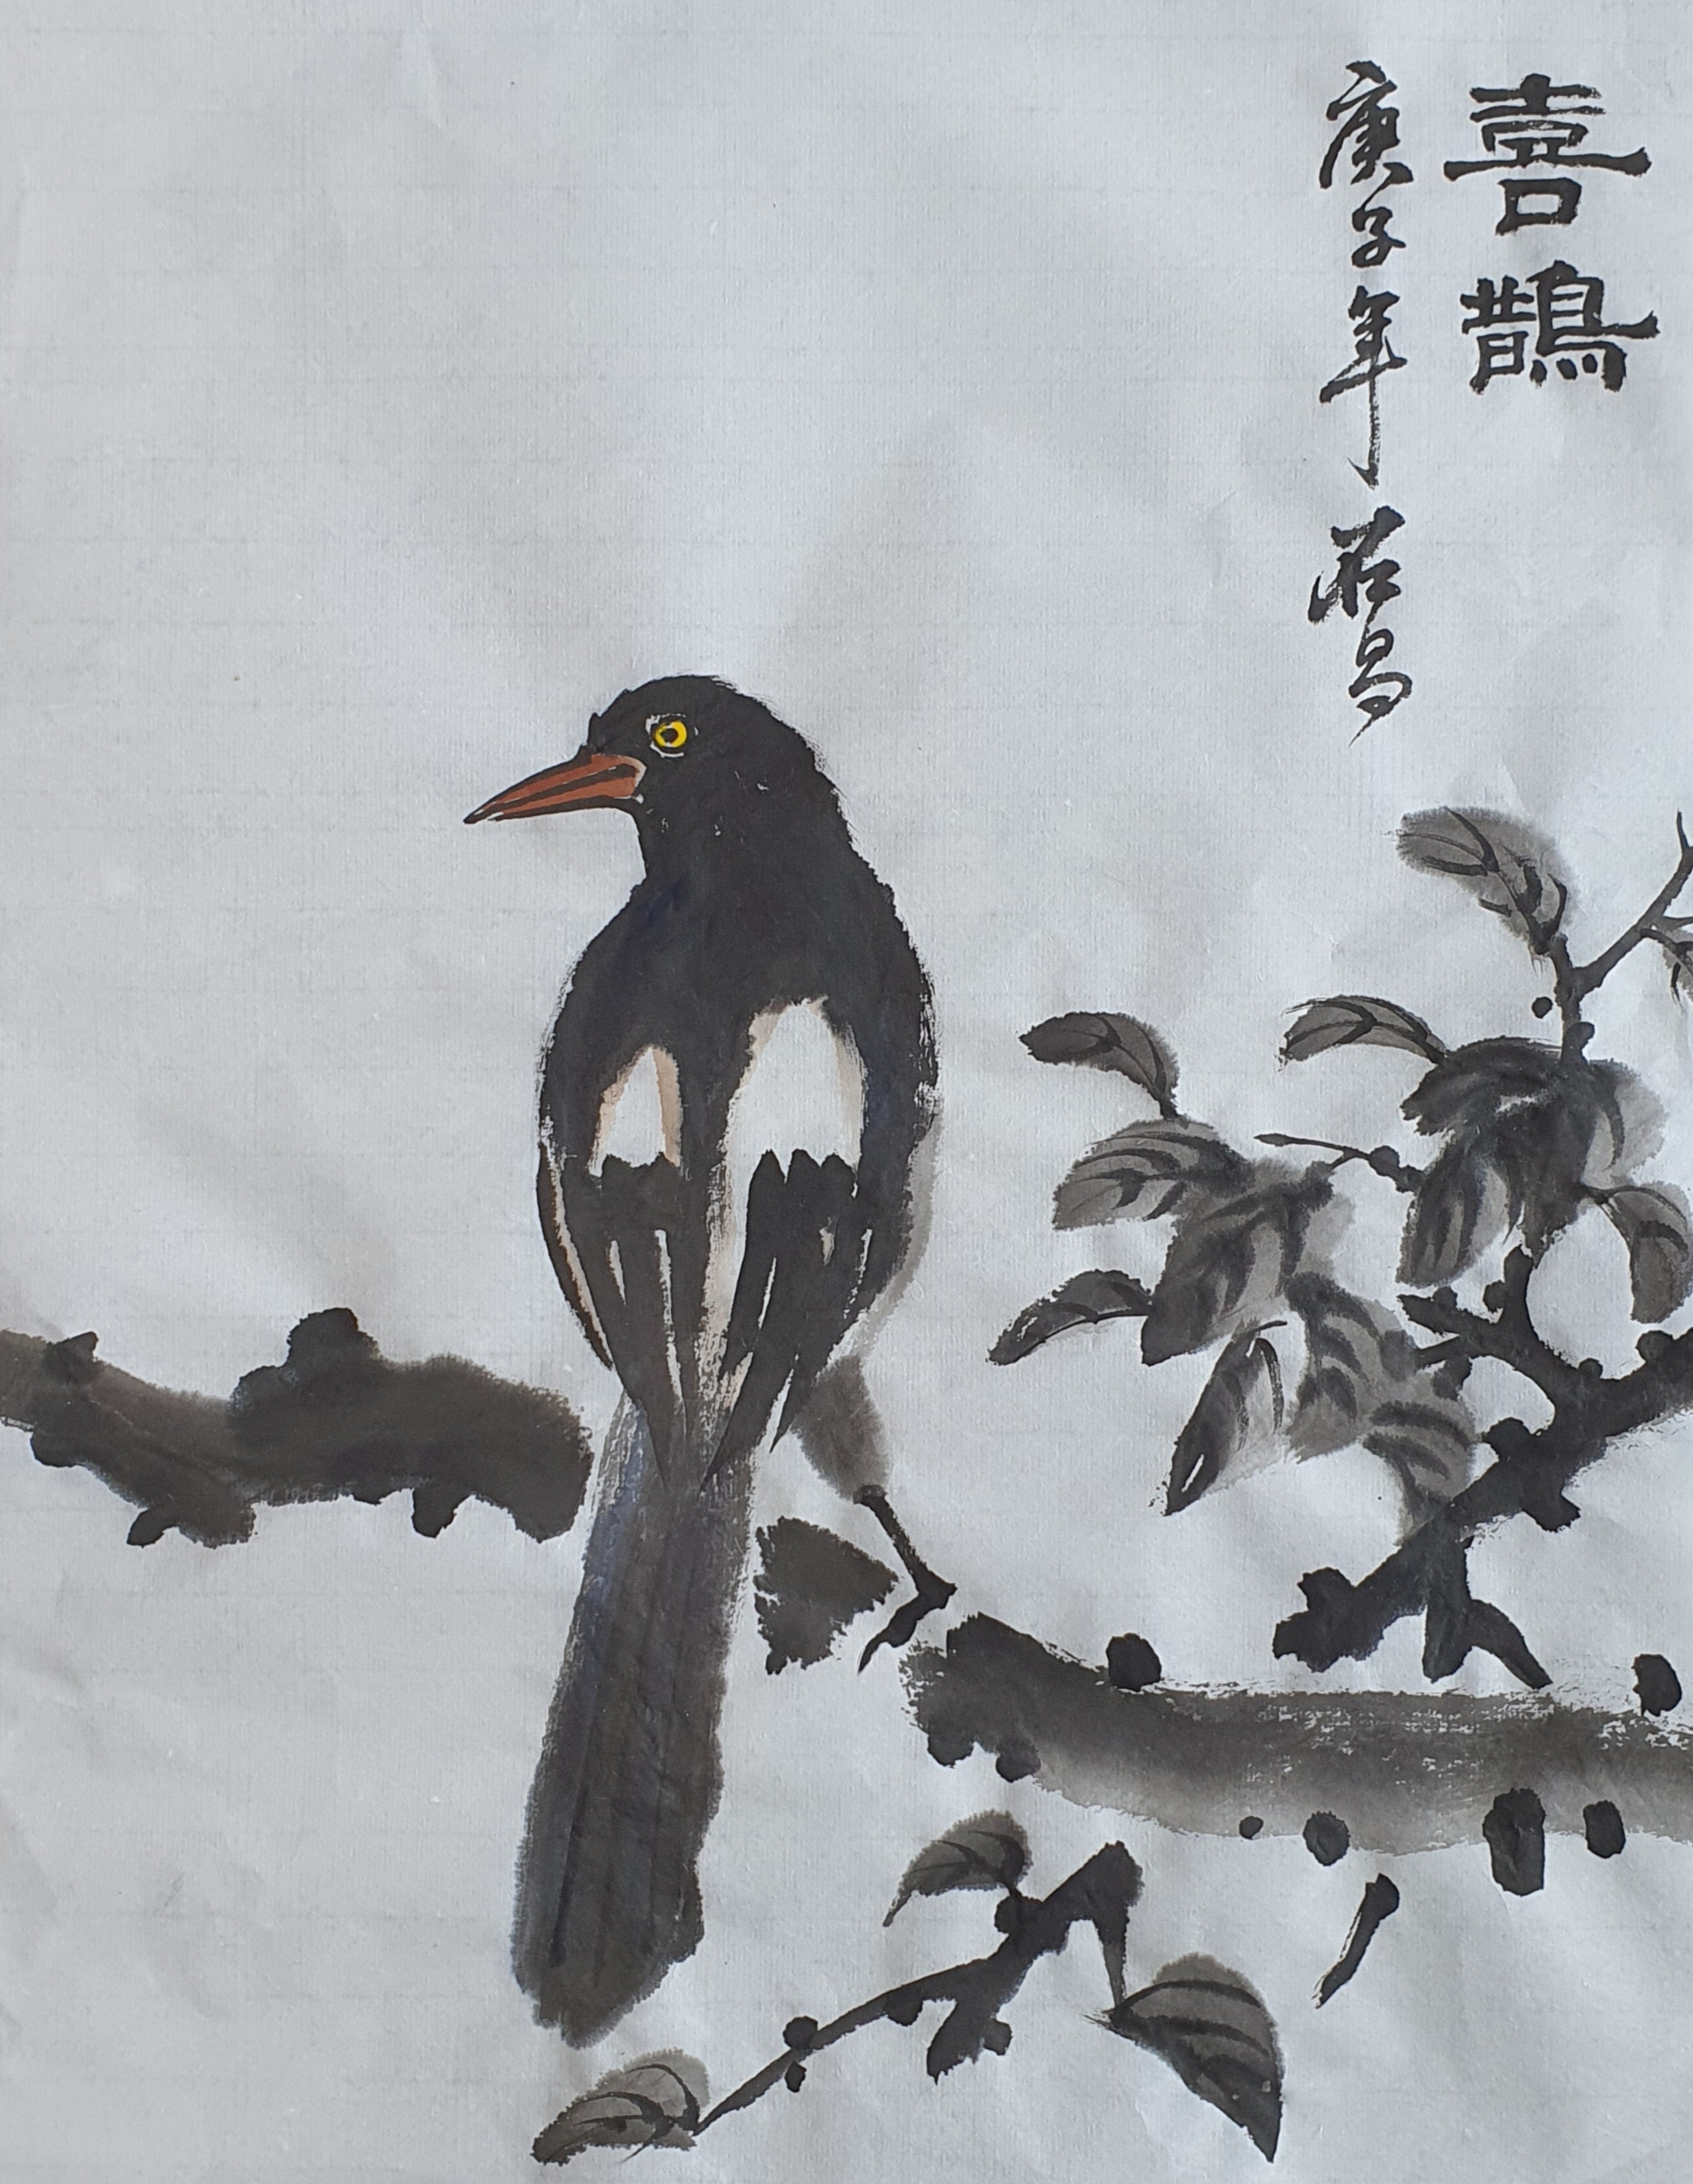 喜鵲
庚子年